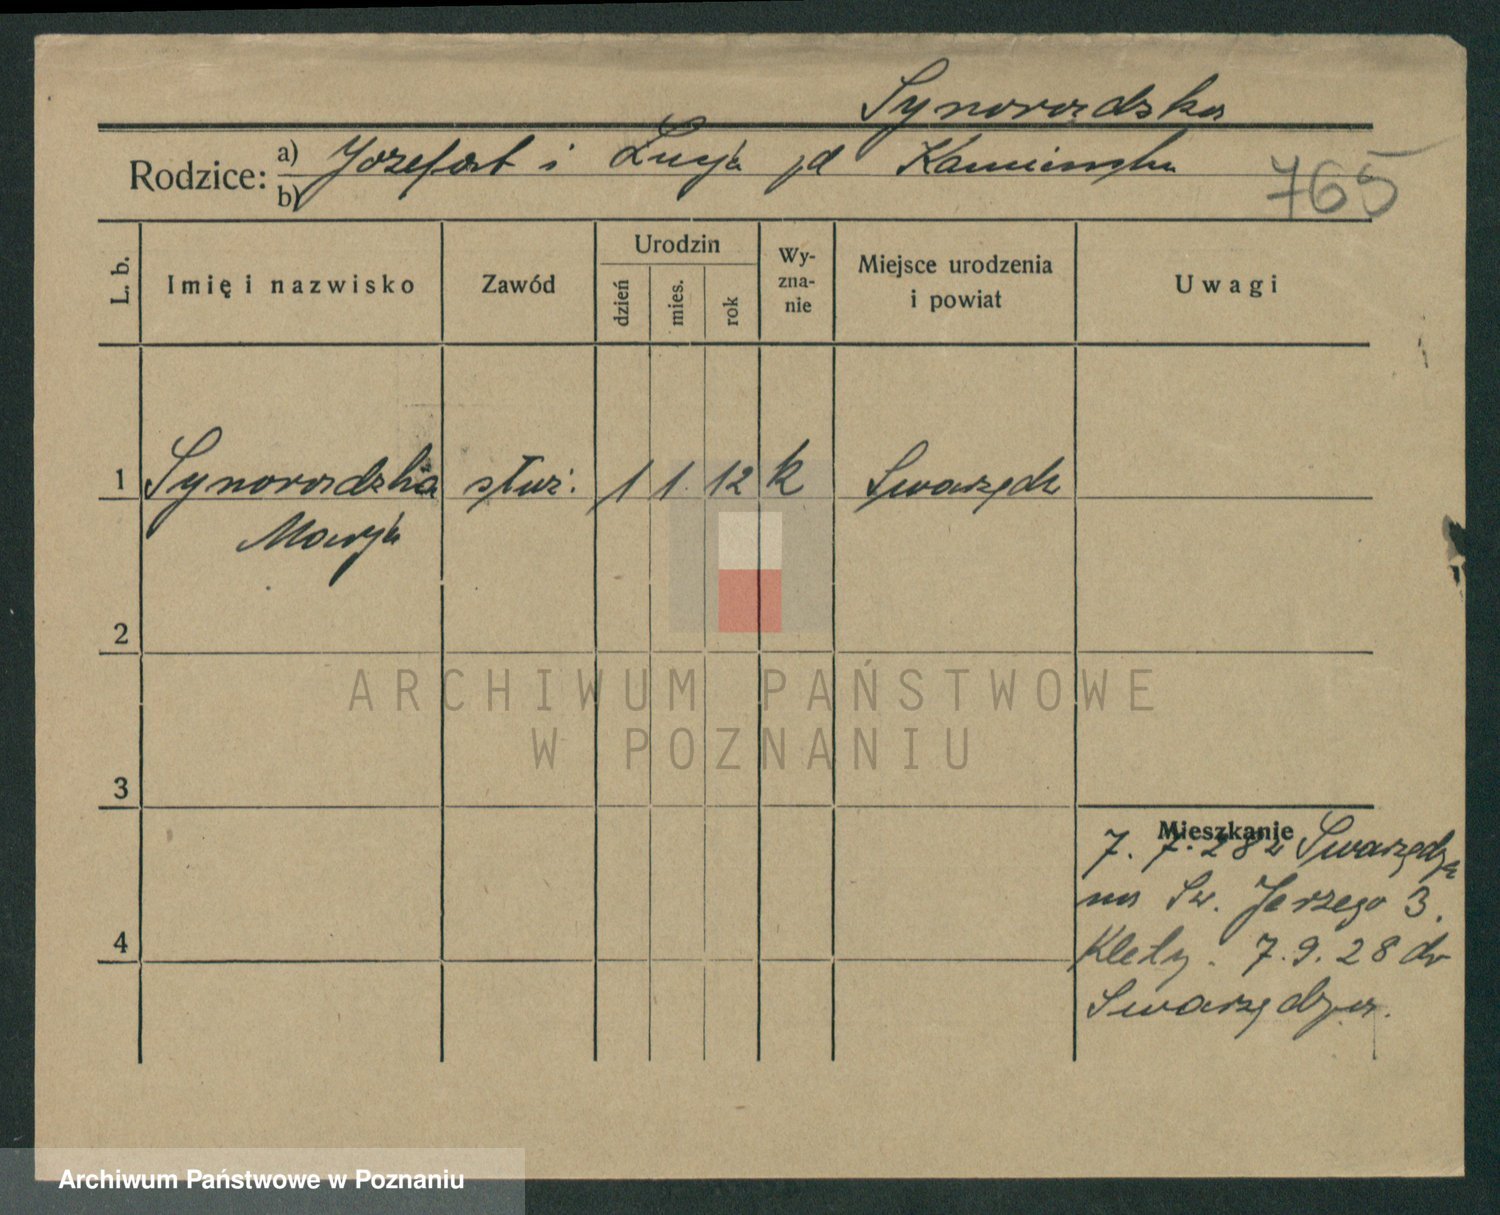 Synoradzka
Rodzice: a) Józefat i Lucja jd Kamieńska
b)
765
L. b. Imię i nazwisko Zawód Urodzin dzień mies. rok Wy-zna-nie Miejsce urodzenia i powiat Uwagi
1 Synoradzka służ. 1 1. 12 k Swarzędz
Marja
2
3
4
Mieszkanie
7. 7. 28 z Swarzędza
na Św. Jerzego 3.
Klety. 7. 9. 28 do
Swarzędza.
ARCHIWUM PAŃSTWOWE
W POZNANIU
Archiwum Państwowe w Poznaniu